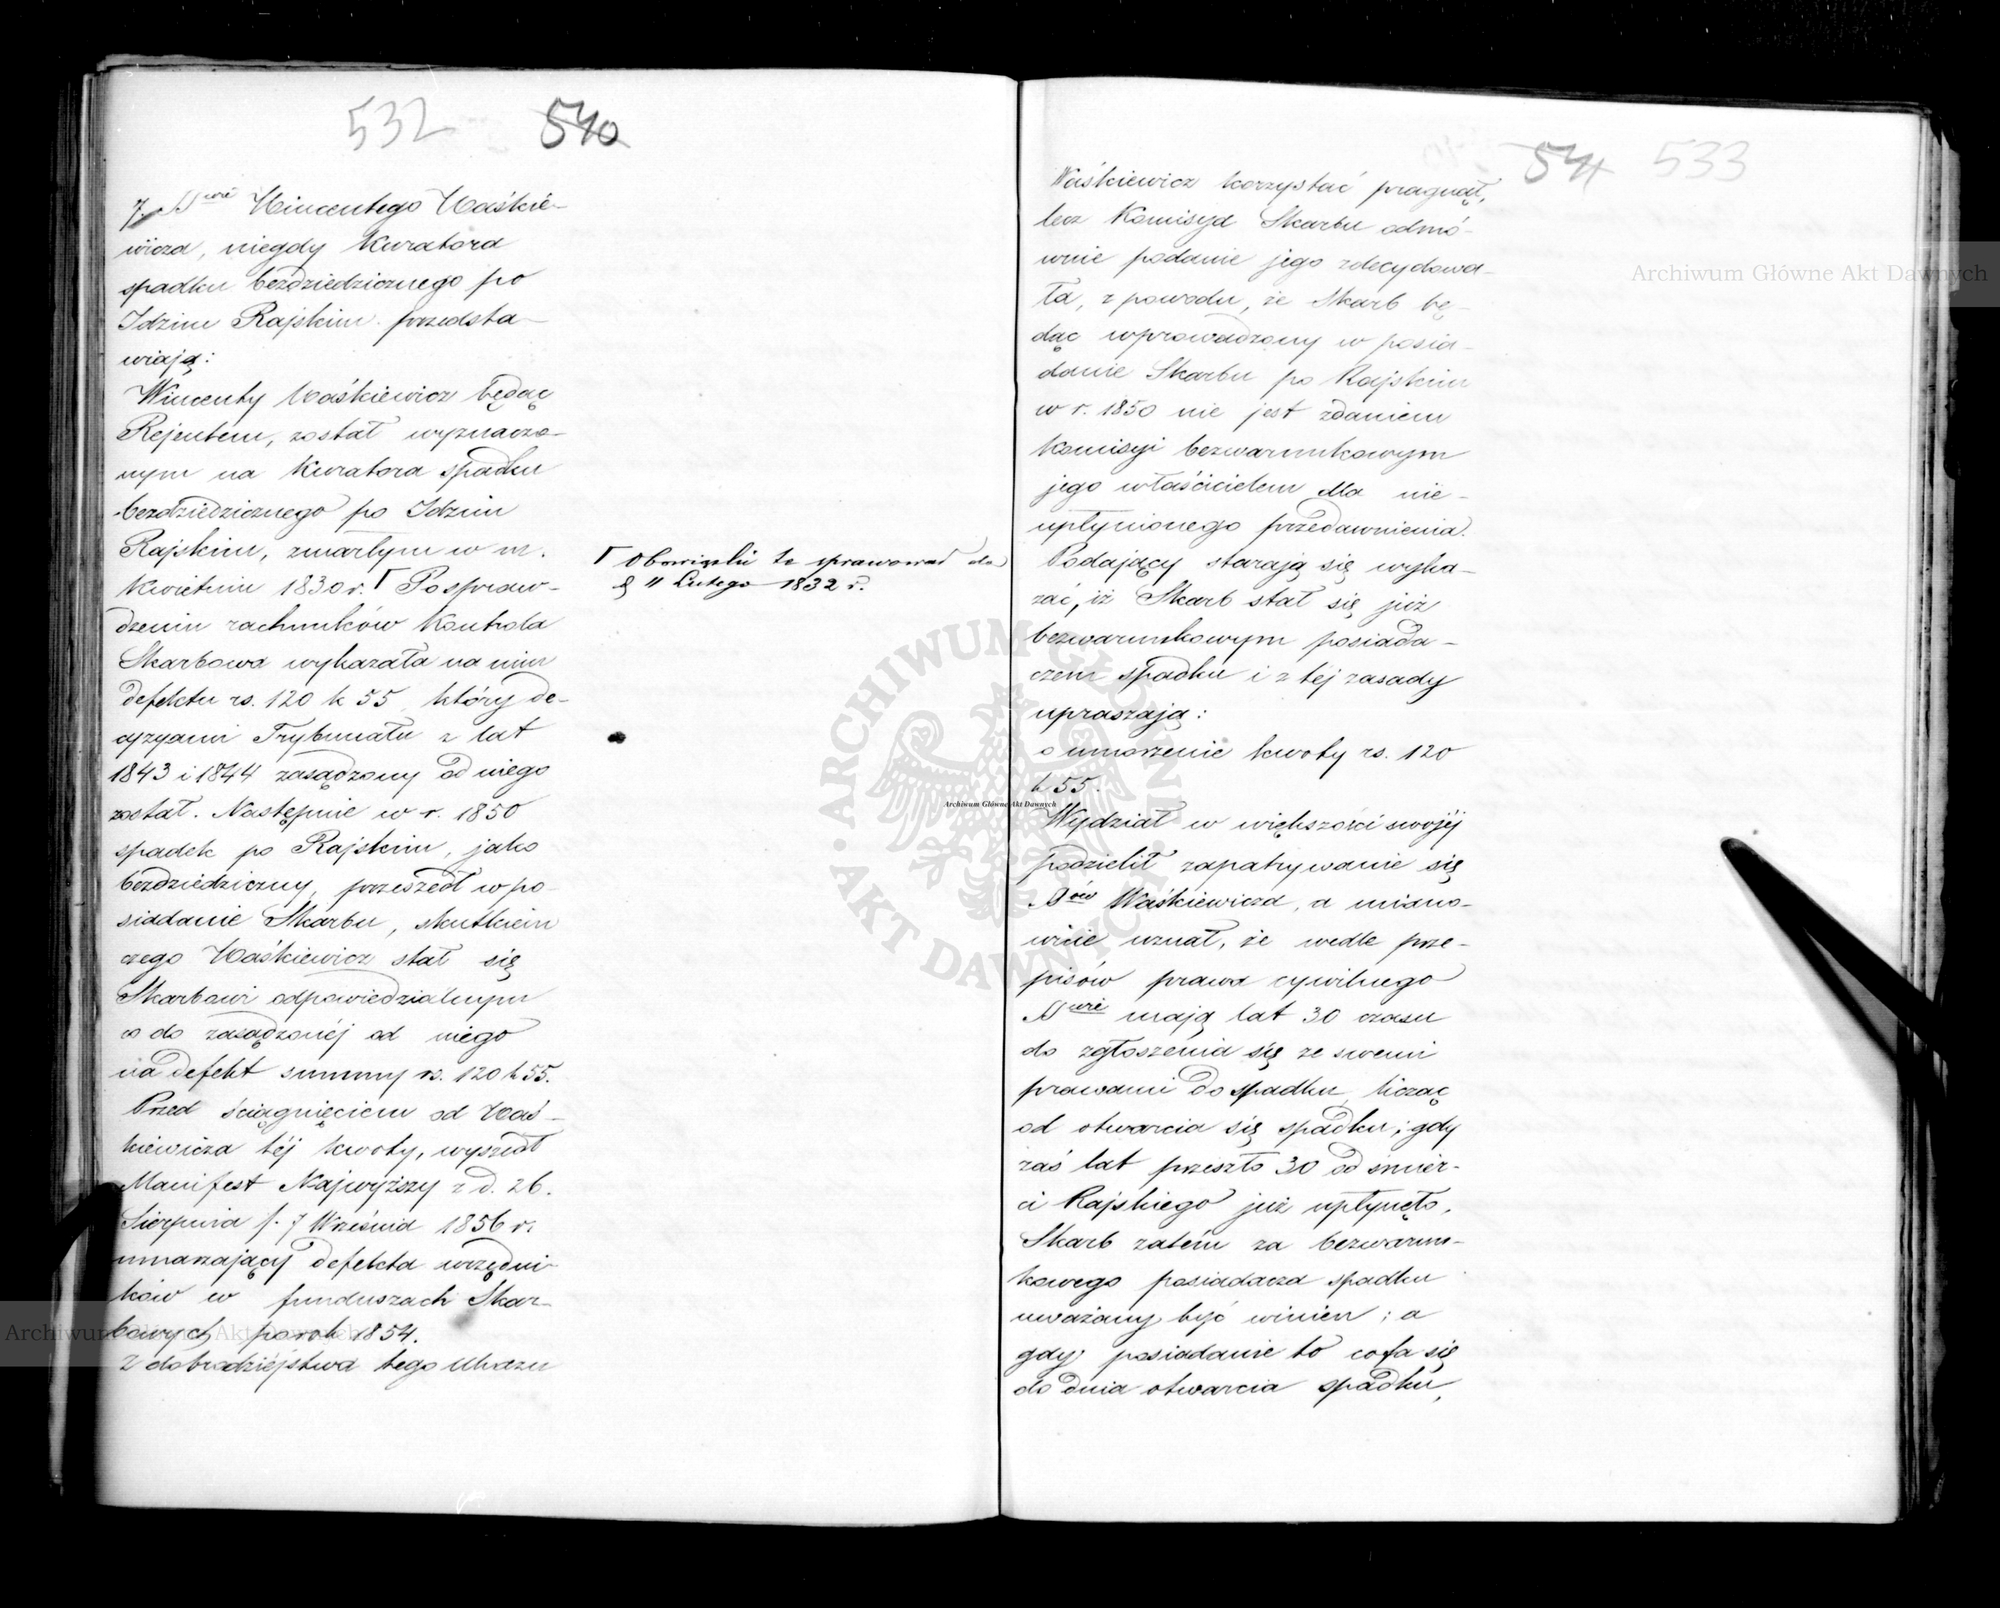 532 540
7. S<sup>rowie</sup> Wincentego Waśkie-
wicza, niegdy Kuratora
spadku bezdziedzicznego po
Idzim Rajskim przedsta-
wiają:
Wincenty Waśkiewicz będąc
Rejentem, został wyznaczo-
nym na Kuratora spadku
bezdziedzicznego po Idzim
Rajskim, zmarłym w m.
Kwietniu 1830 r. Γ Po spraw-
dzeniu rachunków Kontrola
Skarbowa wykazała na nim
defektu rs. 120 k 55, który de-
cyzyami Trybunału z lat
1843 i 1844 zasądzony od niego
został. Następnie w r. 1850
spadek po Rajskim, jako
bezdziedziczny, przeszedł w po-
siadanie Skarbu, skutkiem
czego Waśkiewicz stał się
Skarbowi odpowiedzialnym
co do zasądzonéj od niego
na defekt summy rs. 120 k 55.
Przed ściągnięciem od Waś-
kiewicza téj kwoty, wyszedł
Manifest Najwyższy z d. 26.
Sierpnia f. 7 Września 1856 r.
umarzający defekta urzędni-
ków w funduszach Skar-
bowych po rok 1854.
Z dobrodziéjstwa tego Ukazu
Γ Obowiązki te sprawował do
d. 11 Lutego 1832 r.
541 533
Waśkiewicz korzystać pragnął,
lecz Komisya Skarbu odmó-
wnie podanie jego zdecydowa-
ła, z powodu, że Skarb bę-
dąc wprowadzony w posia-
danie Skarbu po Rajskim
w r. 1850 nie jest zdaniem
Komisyi bezwarunkowym
jego właścicielem dla nie-
upłynionego przedawnienia.
Podający starają się wyka-
zać, iż Skarb stał się już
bezwarunkowym posiada-
czem spadku i z téj zasady
upraszają:
o umorzenie kwoty rs. 120
k 55.
Wydział w większości swojéj
podzielił zapatrywanie się
S<sup>ów</sup> Waśkiewicza, a miano-
wicie uznał, że wedle prze-
pisów prawa cywilnego
S<sup>rowie</sup> mają lat 30 czasu
do zgłoszenia się ze swemi
prawami do spadku, licząc
od otwarcia się spadku; gdy
zaś lat przeszło 30 od śmier-
ci Rajskiego już upłynęło,
Skarb zatém za bezwarun-
kowego posiadacza spadku
uważany być winien; a
gdy posiadanie to cofa się
do dnia otwarcia spadku,
Archiwum Główne Akt Dawnych
Archiwum Główne Akt Dawnych
Archiwum Główne Akt Dawnych
ARCHIWUM GŁÓWNE AKT DAWNYCH